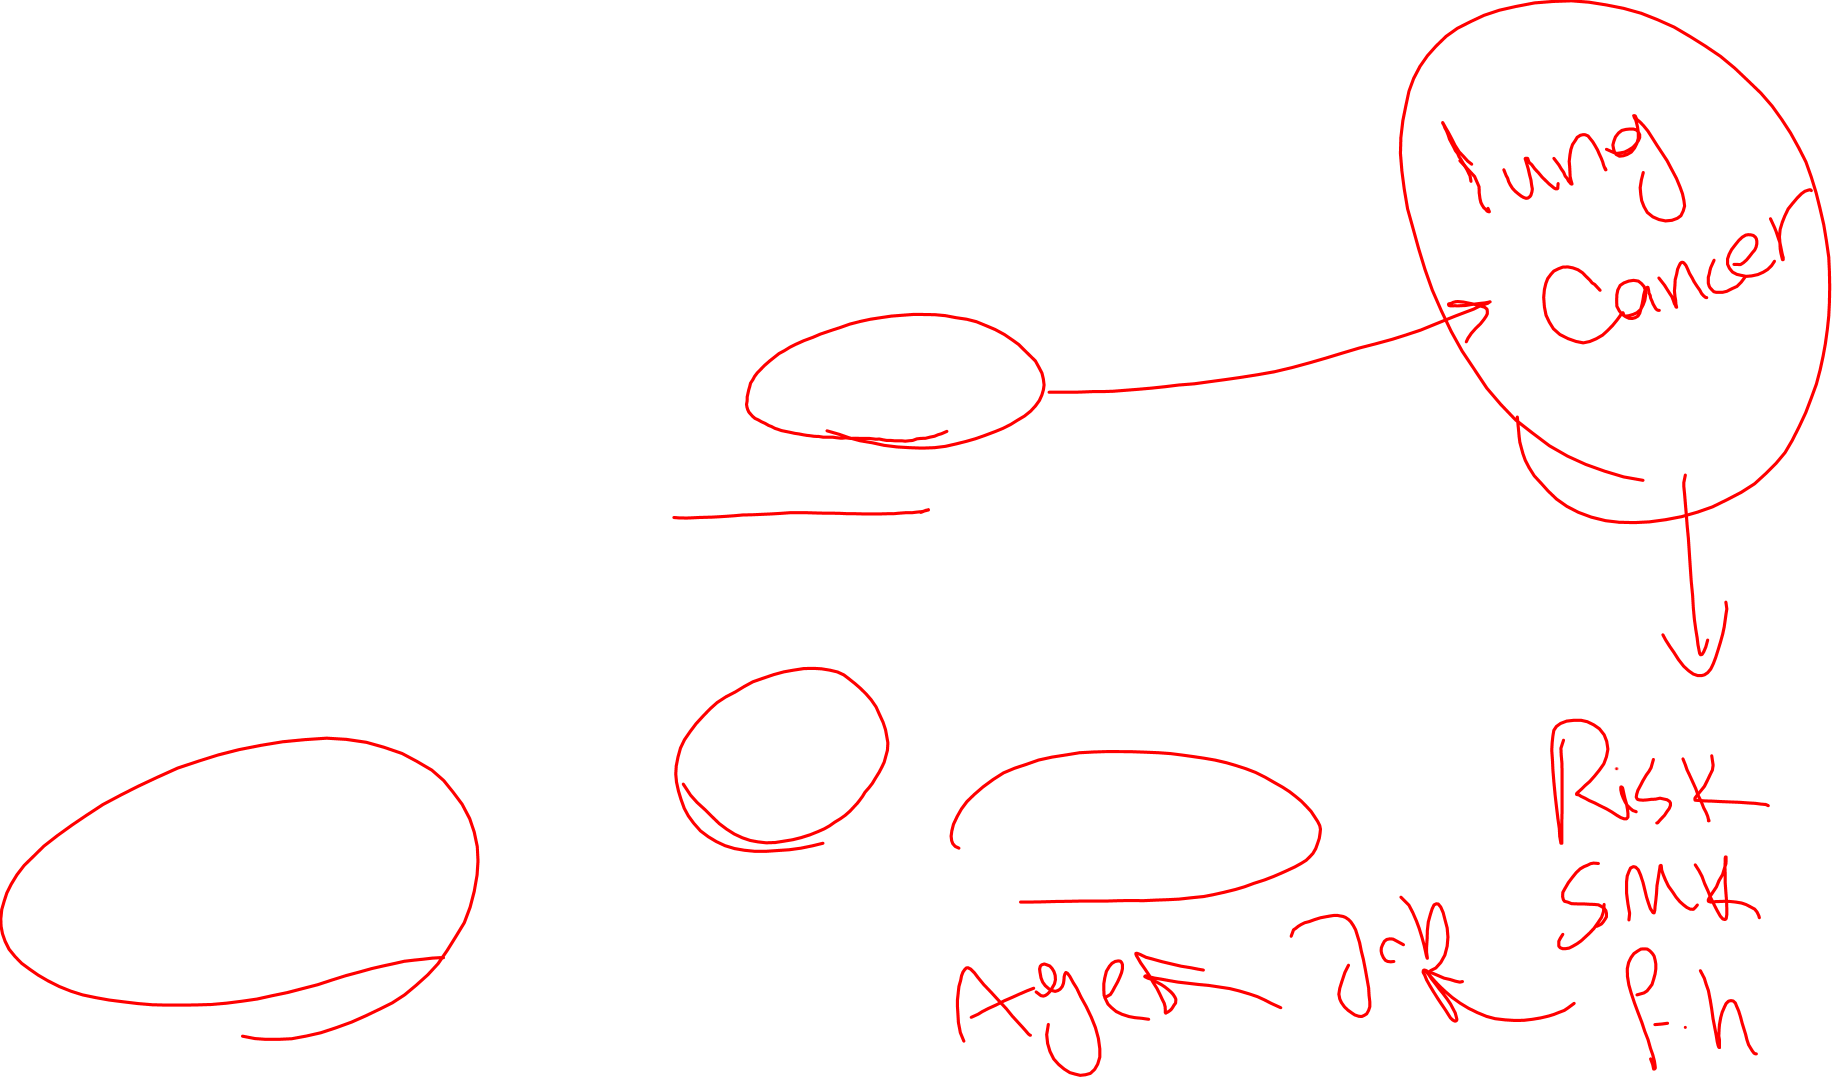 lung
Cancer
Risk
SMK
F.h
Job
Age